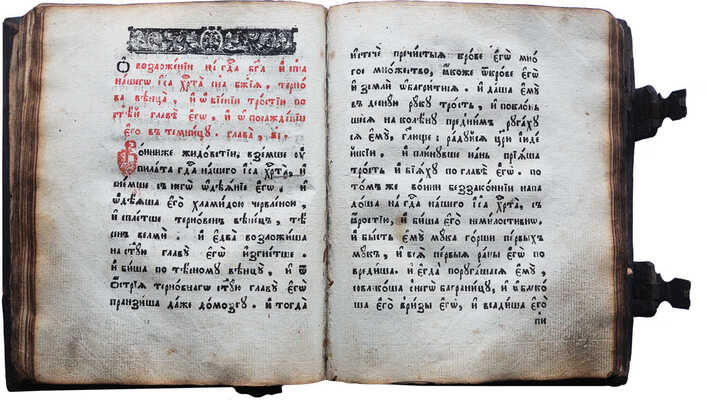 О возложенїи на гда бга и спа
нашего їса хрта сна бжїя, терно
ва вѣнца, и ѡ бїенїи тростїю по
стѣй главѣ егѡ, и ѡ посажденїи
его въ темницу. глава, кі.
Воиниже жидовстїи, вземше ѿ
пилата гда нашего їса хрта, и
снемше с него ѡдѣянїе егѡ, и
ѡдѣяша его хламидою червленою,
и сплетше терновен вѣнецъ, тѣ
снъ велми. и едва возложиша
на стую главу егѡ изгнѣтше.
и биша по тѣсному вѣнцу, и ѿ
ѡстрїя терновнагѡ стую главу егѡ
пранзиша даже до мозгу. и тогда
истече пречистыя крове егѡ мно
гое множество, якоже ѿ крове егѡ
и земли ѡбагритися. и даша емꙋ
въ десную руку трость, и поклонь
шеся на колѣну пред нимъ ругахꙋ
ся емꙋ, глюще: радуйся црю иꙋдей
скїй, и плюнувше нань прїяша
трость и бїяху по главѣ егѡ. по
томъ же воини беззаконнїи напа
доша на гда нашего їса хрта, съ
ꙗростїю, и биша его немилостивѡ,
и бысть емꙋ мука горши первыхъ
мукъ, и вся первыя раны егѡ по
вредиша. и егда поругашася емꙋ,
совлекоша с негѡ багряницу, и облеко
ша его в ризы егѡ, и всадиша его